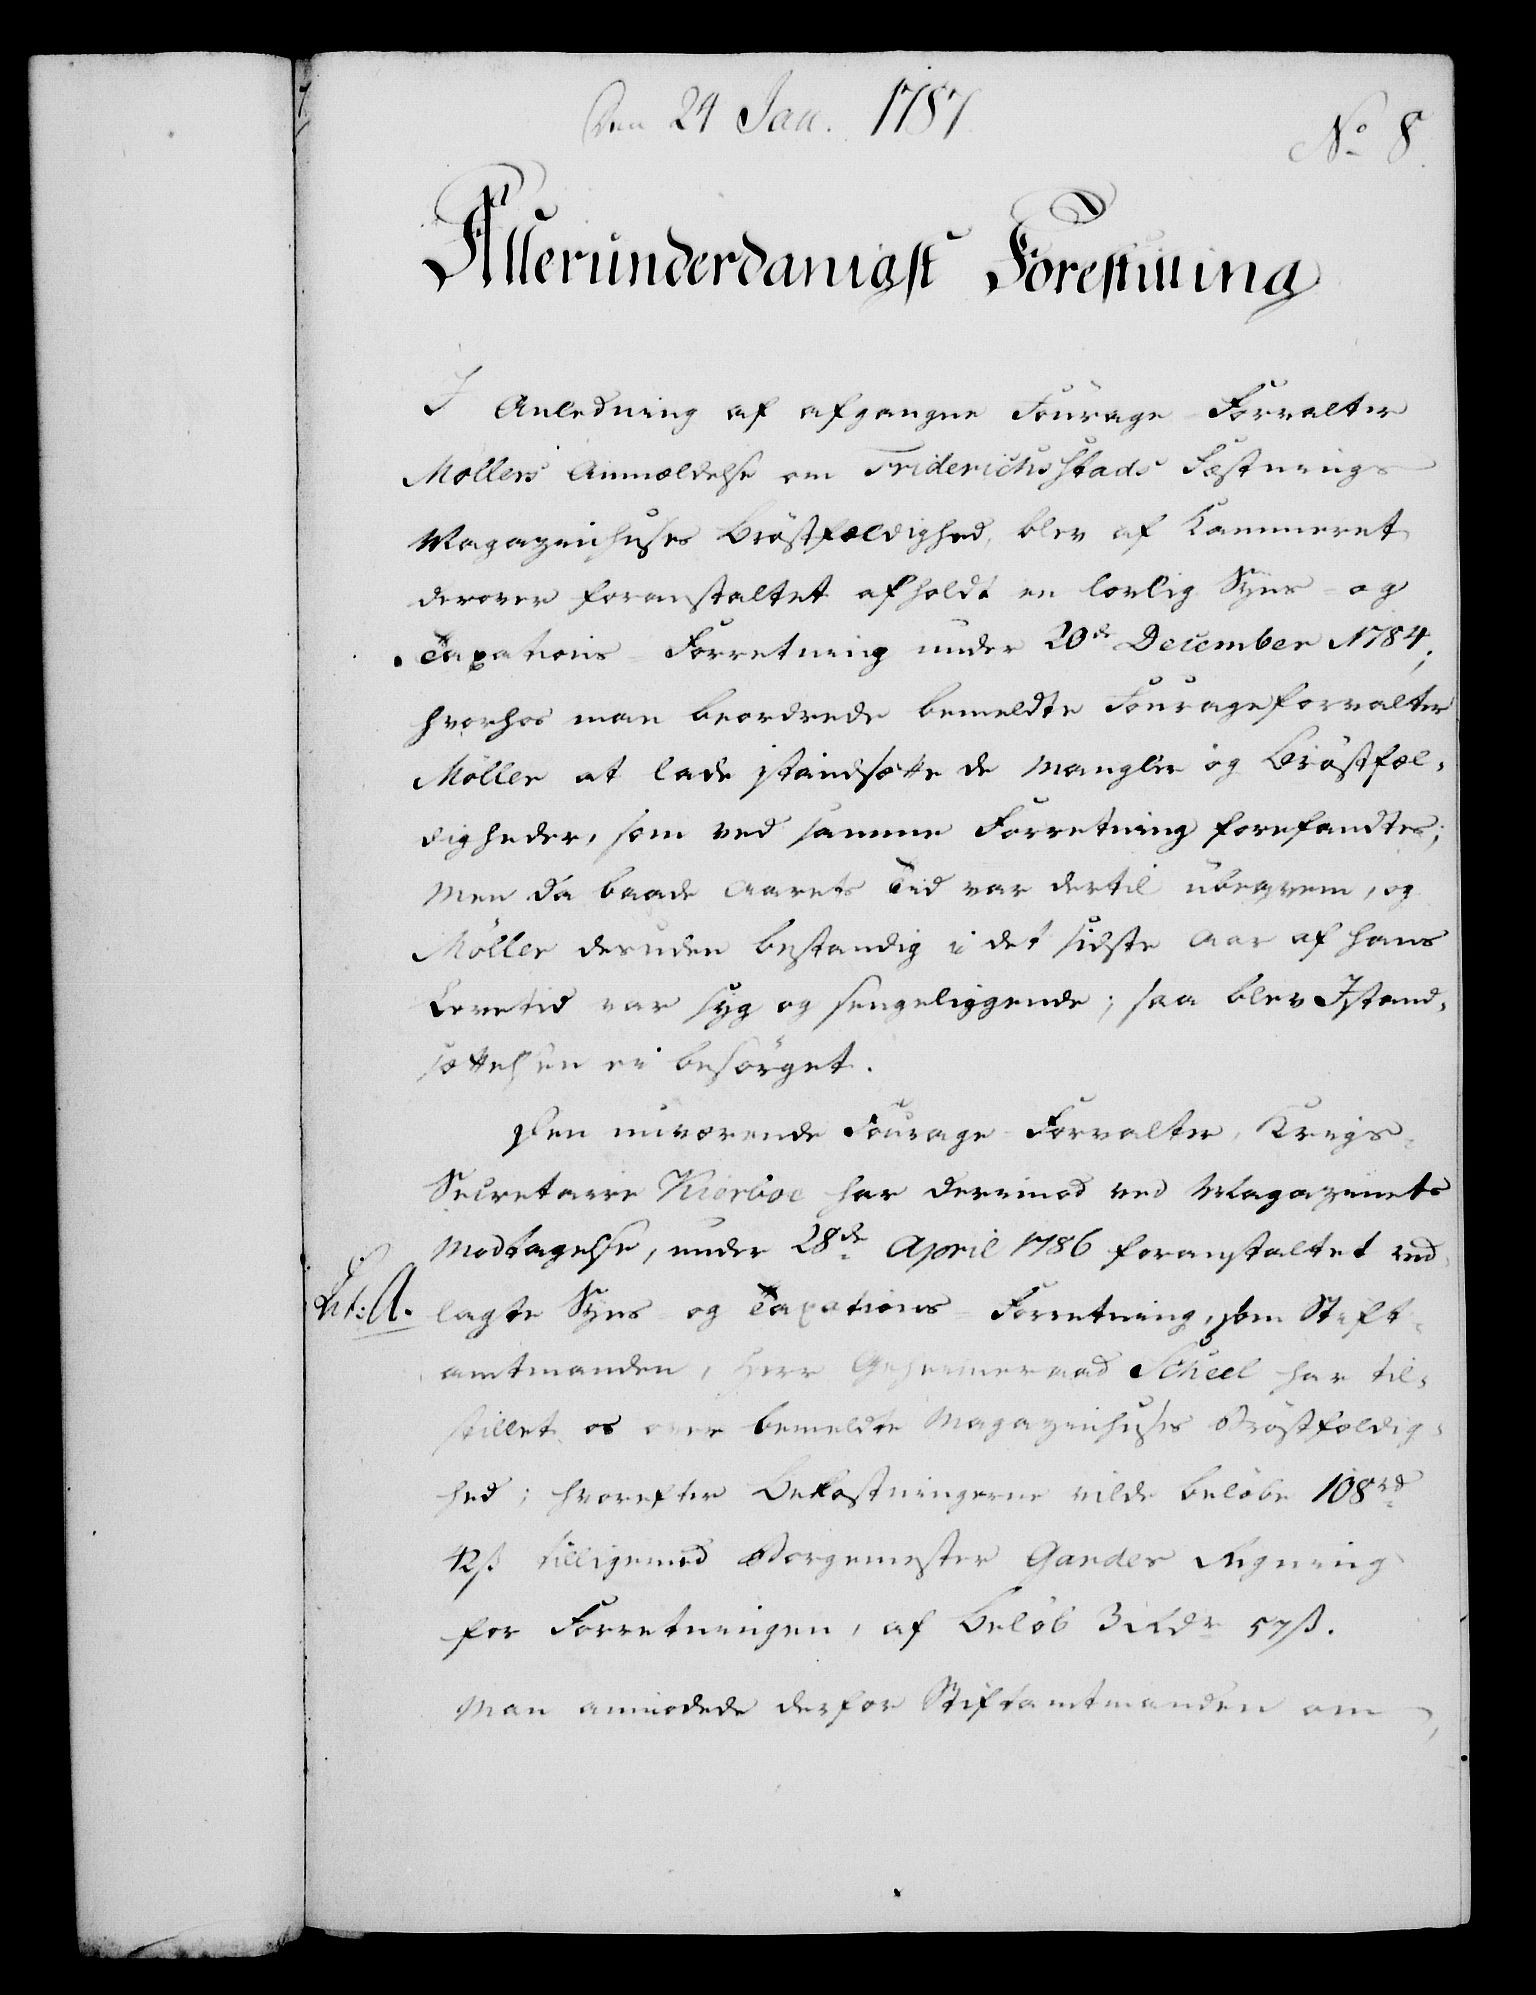 Den 24 Jan. 1787
No 8
Allerunderdanigst Forestilling
I Anledning af afgangne Fourage-Forvalter
Møllers Anmældelse om Friderichsstads Fæstnings
Magazinhuses Bröstfældighed, blev af Kammeret
derover foranstaltet afholdt en lovlig Syns- og
Taxations-Forretning under 20de December 1784;
hvorhos man beordrede bemeldte Fourageforvalter
Möller at lade istandsætte de Mangler og Bröstfæl-
digheder, som ved samme Forretning forefandtes;
Men da baade Aarets Tid var dertil ubeqvem, og
Möller desuden bestandig i det sidste Aar af hans
Levetid var syg og sengeliggende; saa blev Istand-
sættelsen ei besörget.
Den nuværende Fourage-Forvalter, Krigs-
Secretaire Kieröe har derimod ved Magazinets
Modtagelse, under 28de April 1786 foranstaltet ved-
Lit: A.
lagte Syns- og Taxations-Forretning, som Stift-
amtmanden, Herr Geheimeraad Scheel har til-
stillet os over bemeldte Magazinhuses Bröstfældig-
hed; hvorefter Bekostningerne vilde belöbe 108rd
42ß tilligemed Borgemester Gardes Regning
for Forretningen, af Belöb 3 Rdr 57ß.
Man anmodede derfor Stiftamtmanden om,